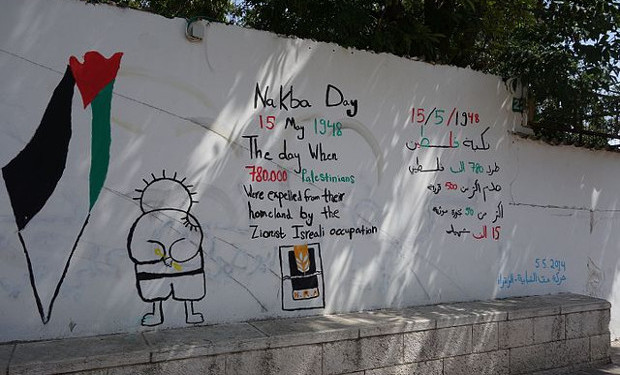 Nakba Day
15 May 1948
The day When
780.000 Palestinians
Were expelled from their
homeland by the
Zionist Isreali occupation
15/5/1948
نكبة فلسطين
طرد 780 الف فلسطيني
هدم اكثر من 500 قرية
اكثر من 50
15 الف شهيد
5.5.2014
حركة الشبابية